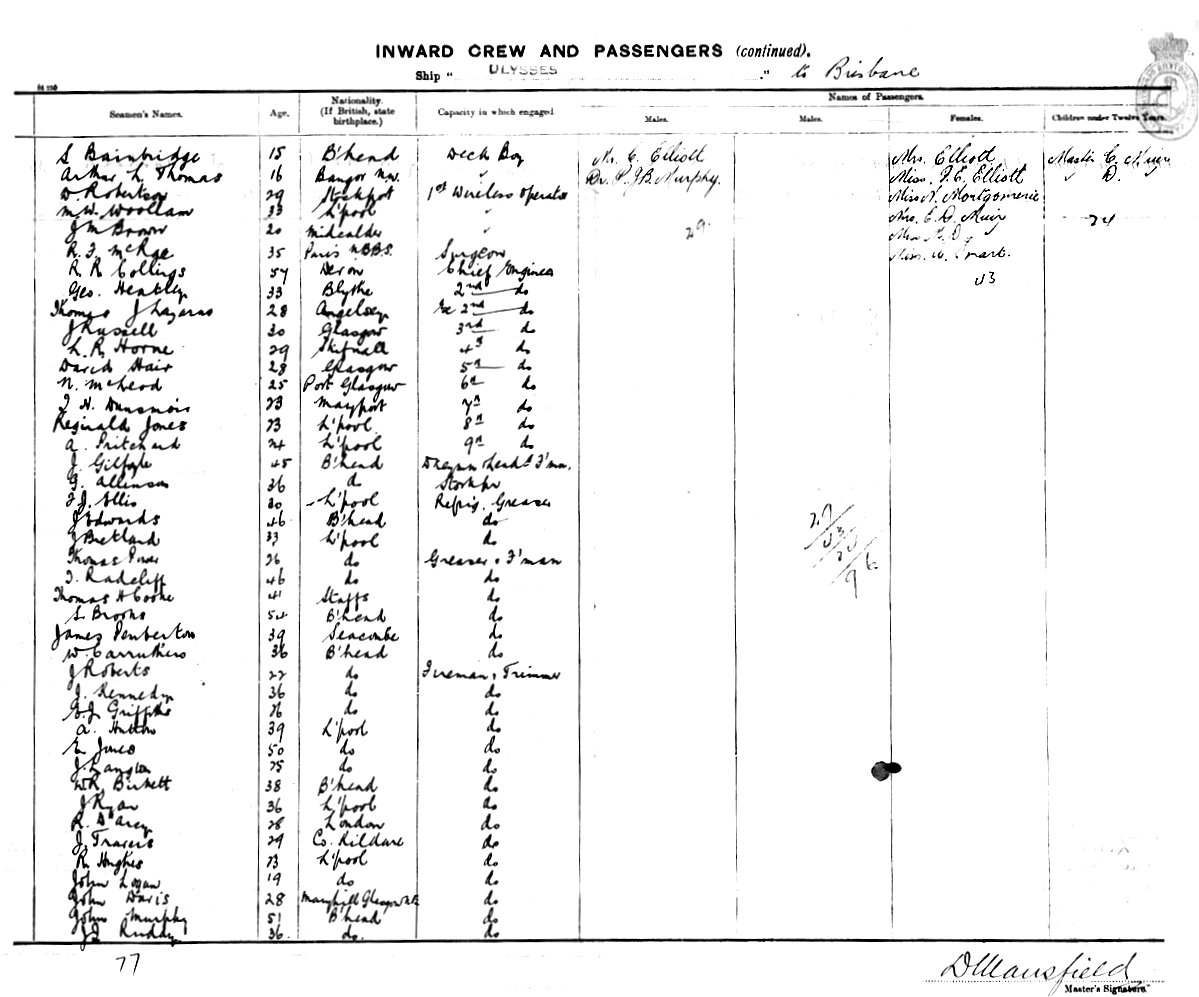 INWARD CREW AND PASSENGERS (continued).
Ship " ULYSSES " to Brisbane
Seamen's Names. Age. Nationality. (If British, state birthplace.) Capacity in which engaged Names of Passengers.
Males. Males. Females. Children under Twelve Years.
S Bainbridge 15 B'head Deck Boy Mr. C. Elliott Mrs. Elliott Master C. Muir
Arthur L Thomas 16 Bangor N.W. " Dr. P. J B. Murphy. Miss. F. E. Elliott " D.
D. Robertson 29 Stockport 1st Wireless Operator Miss N. Montgomerie
M.W. Woollam 33 L'pool " Mrs. E. D. Muir
J M Brown 20 Midcalder " 29 Miss M. D. 24
R. J. McRae 35 Paris Surgeon Miss. W. Smart.
R. R Collings 57 Devon Chief Engineer
Geo. Heatley 33 Blythe 2nd do 43
Thomas J Lazarus 28 Anglesey 2nd do
J Russell 30 Glasgow 3rd do
L. R. Horne 29 Shifnall 4th do
David Hair 28 Glasgow 5th do
N. McLeod 25 Port Glasgow 6th do
J. H. Dunsmoir 23 Maryport 7th do
Reginald Jones 23 L'pool. 8th do
A. Pritchard 24 L'pool 9th do
J. Gilfoyle 45 B'head
G. Allinson 36 do Storkpr
F. J. Ellis 30 L'pool Refrig. Greaser
J Edwards 46 B'head do
J Bretland 33 L'pool do
Thomas Power 26 do Greaser & F'man
J. Radcliff 46 do do
Thomas H Cooke 41 Staffs do
S. Brooks 54 B'head do
James Penberton 39 Seacombe do
W. Carruthers 36 B'head do
J Roberts 22 do Fireman & Trimmer
J. Kennedy 36 do do
Griffiths 26 do do
A. Hutton 39 L'pool do
E. Jones 50 do do
J. Langton 25 do do
W.R. Birkett 38 B'head do
J Ryan 36 L'pool do
R. D'Arcy 28 London do
J. Travers 29 Co. Kildare do
R. Hughes 23 L'pool do
John Logan 19 do do
John Davis 28 Maryhill Glasgow do
John Murphy 51 B'head do
J J Ruddy 36 do. do
77
D Mansfield
Master's Signature.